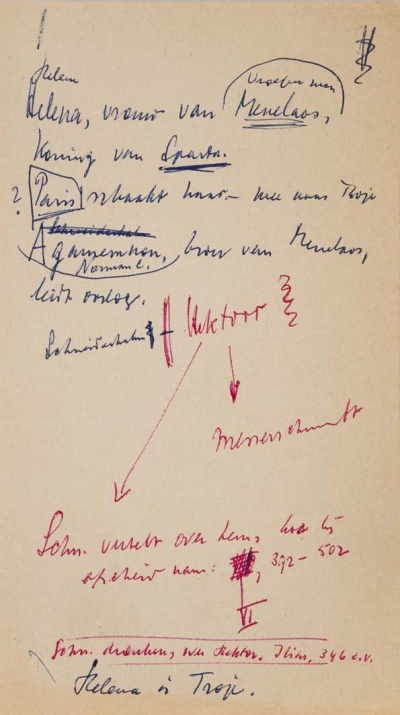 Helena
vroeger man
Helena, vrouw van Menelaos,
koning van Sparta.
? Paris schaakt haar – mee naar Troje
Schneiderhahn
Agamemnon, broer van Menelaos,
Norman C.
leidt oorlog.
Schneiderhahn – Hektoor
Messerschmitt
Schn. vertelt over hem, hoe hij
afscheid nam: , 392 – 502
VI
Schn. over Hektor. Ilias, 346 e.v.
Helena is Troje.